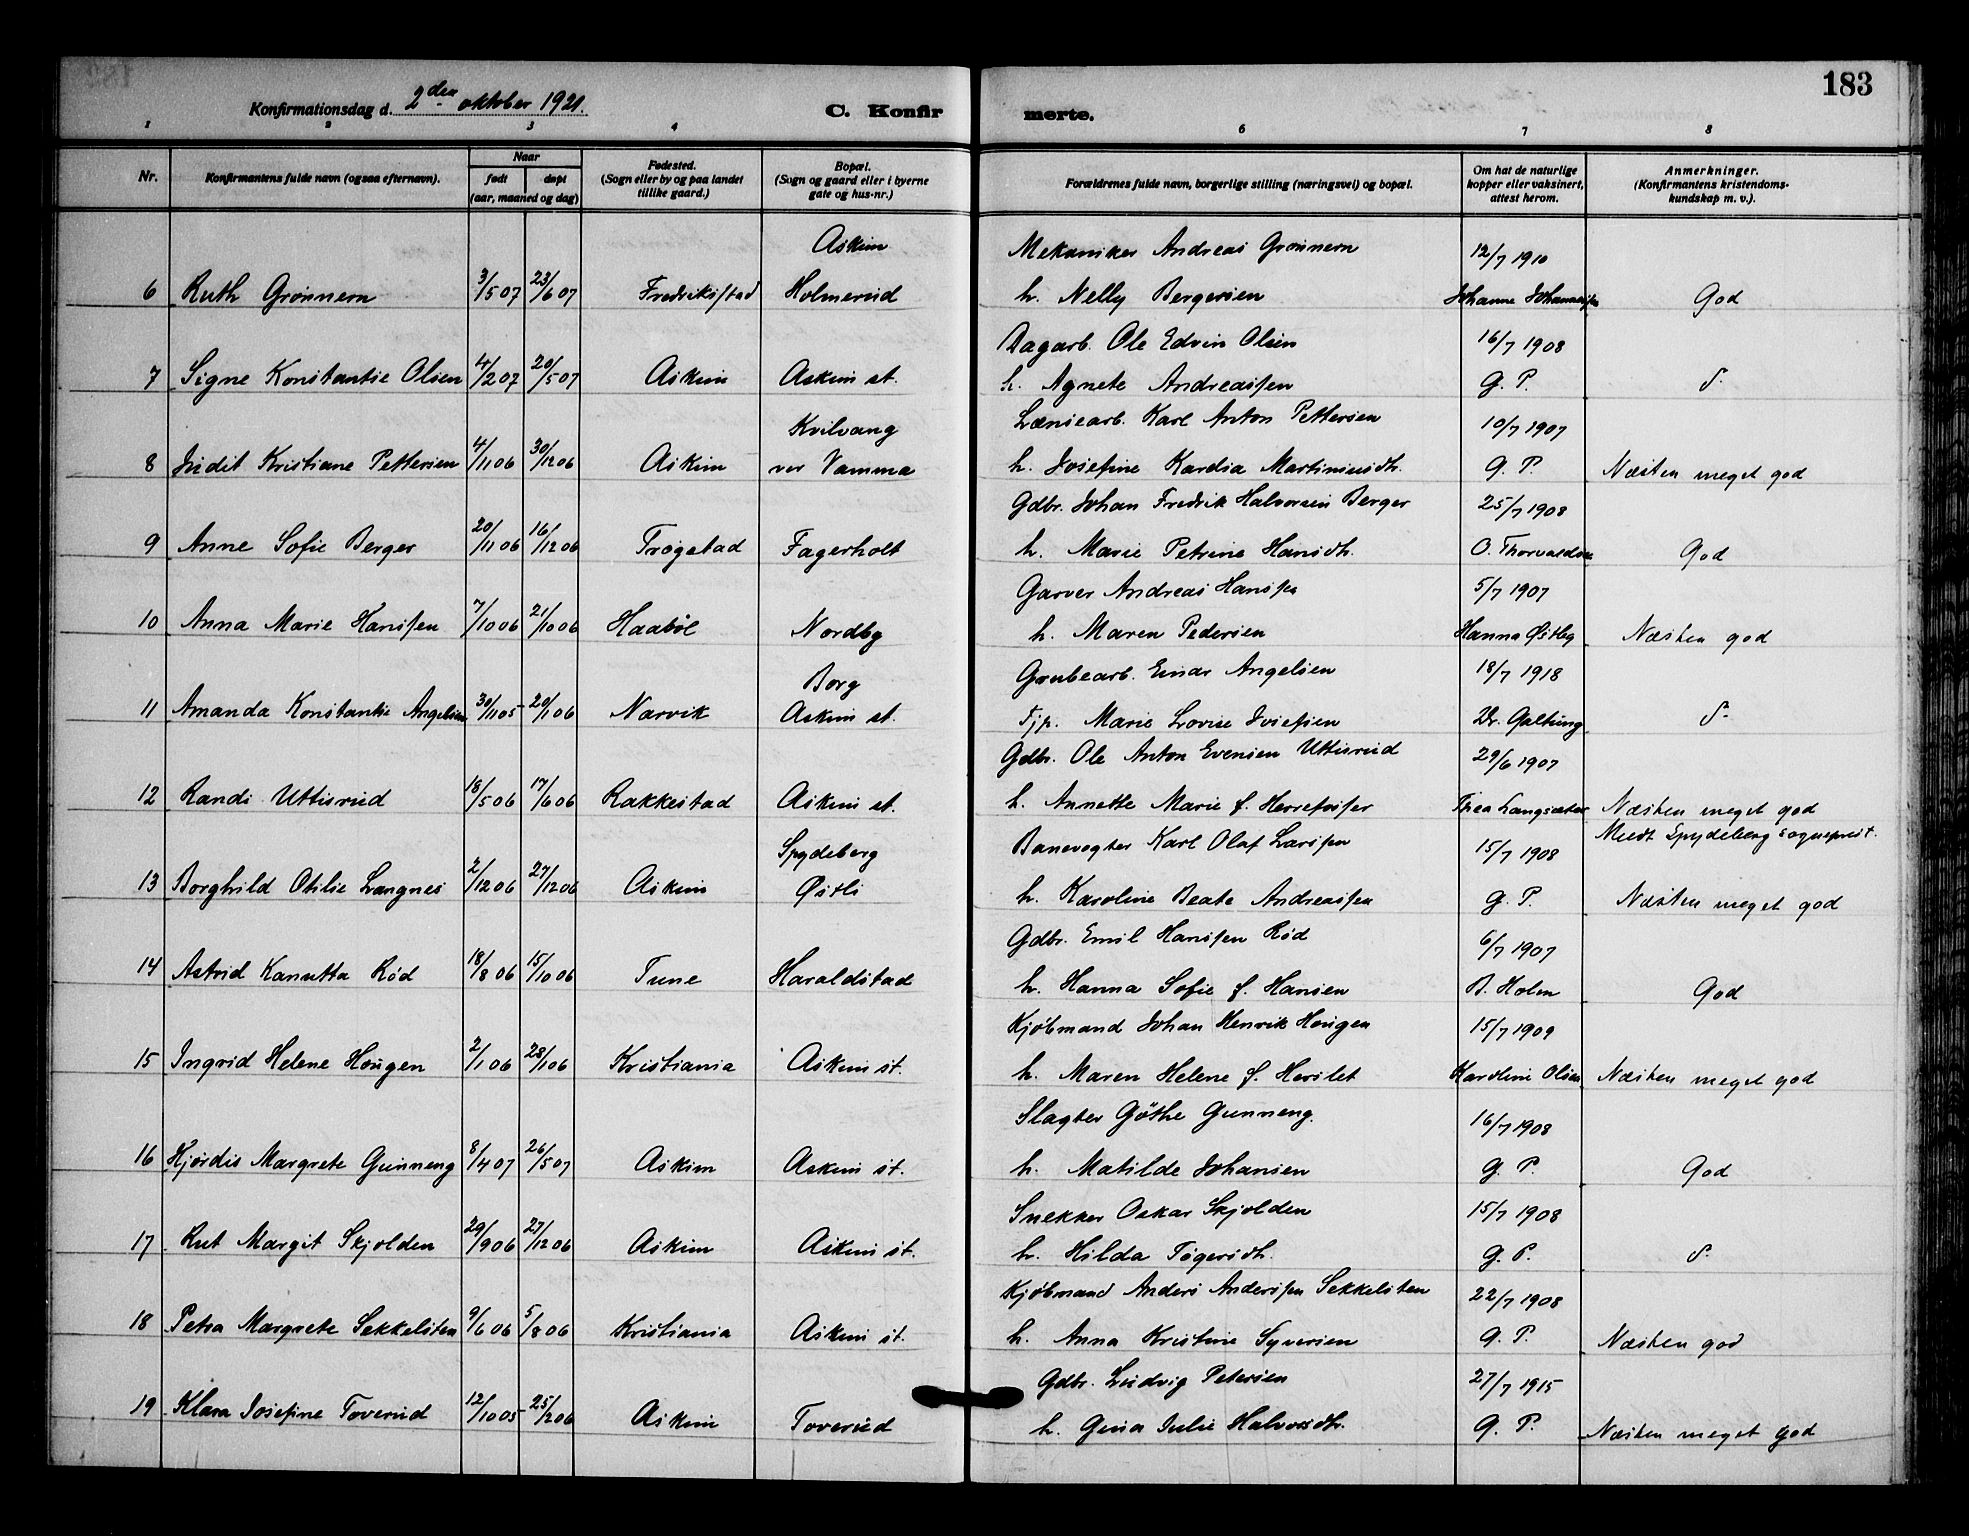 183
Konfirmationsdag d. 2den oktober 1921.
C. Konfir merte.
1 2 3 4 5 6 7 8
Nr.
Konfirmantens fulde navn (ogsaa efternavn).
Naar
født døpt
(aar, maaned og dag)
Fødested.
(Sogn eller by og paa landet
tillike gaard.)
Bopæl.
(Sogn og gaard eller i byerne
gate og hus-nr.)
Forældrenes fulde navn, borgerlige stilling (næringsvei) og bopæl.
Om hat de naturlige
kopper eller vaksinert,
attest herom.
Anmerkninger.
(Konfirmantens kristendoms-
kundskap m. v.).
Askim Mekaniker Andreas Grønnern 12/7 1910
6 Ruth Grønnern 3/5 07 23/6 07 Fredrikstad Holmerud h. Nelly Bergersen Johanne Johannessen God
Dagarb. Ole Edvin Olsen 16/7 1908
7 Signe Konstantse Olsen 4/2 07 20/5 07 Askim Askim st. h. Agnete Andreassen G. P.
Kvilvang Lænsearb. Karl Anton Pettersen 10/7 1907
8 Judit Kristiane Pettersen 4/11 06 30/12 06 Askim ver Vamma h. Josefine Kardia Martiniusdh. G. P. Næsten meget god
Gdbr. Johan Fredrik Halvorsen Berger 25/7 1908
9 Anne Sofie Berger 20/11 06 16/12 06 Trøgstad Fagerholt h. Marie Petrine Hansdh. O. Thorvaldsen God
Garver Andreas Hanssen 5/7 1907
10 Anna Marie Hanssen 7/10 06 21/10 06 Haabøl Nordby h. Maren Pedersen Hanna Østby Næsten god
Borg Grubearb. Einar Angelsen 18/7 1918
11 Amanda Konstantse Angelsen 30/11 05 20/1 06 Narvik Askim st. Tjp. Marie Lovise Josefsen Dr. Galtung
Gdbr. Ole Anton Evensen Uttisrud 29/6 1907
12 Randi Uttisrud 18/5 06 17/6 06 Rakkestad Askim st. h. Annette Marie f. Herrefosser Thea Langsæter Næsten meget god
Spydeberg Banevogter Karl Olaf Larssen 15/7 1908 Meldt Spydeberg sogneprest.
13 Borghild Otilie Langnes 2/12 06 27/12 06 Askim Østli h. Karoline Beate Andreassen G. P. Næsten meget god
Gdbr. Emil Hanssen Rød 6/7 1907
14 Astrid Kanutta Rød 18/8 06 15/10 06 Tune Haraldstad h. Hanna Sofie f. Hansen B. Holm God
Kjøbmand Johan Henrik Hougen 15/7 1909
15 Ingrid Helene Hougen 2/1 06 28/1 06 Kristiania Askim st. h. Maren Helene f. Herslet Karoline Olsen Næsten meget god
Slagter Gøthe Gunneng. 16/7 1908
16 Hjørdis Margrete Gunneng 8/4 07 26/5 07 Askim Askim st. h. Matilde Johansen G. P. God
Snekker Oskar Skjolden 15/7 1908
17 Rut Margit Skjolden 29/9 06 27/12 06 Askim Askim st. h. Hilda Tøgersdh. G. P.
Kjøbmand Anders Anderssen Sekkelsten 22/7 1908
18 Petra Margrete Sekkelsten 9/6 06 5/8 06 Kristiania Askim st. h. Anna Kristine Syversen G. P. Næsten god
Gdbr. Ludvig Petersen 27/7 1915
19 Klara Josefine Toverud 12/10 05 25/2 06 Askim Toverud h. Gina Julie Halvorsdh. G. P. Næsten meget god